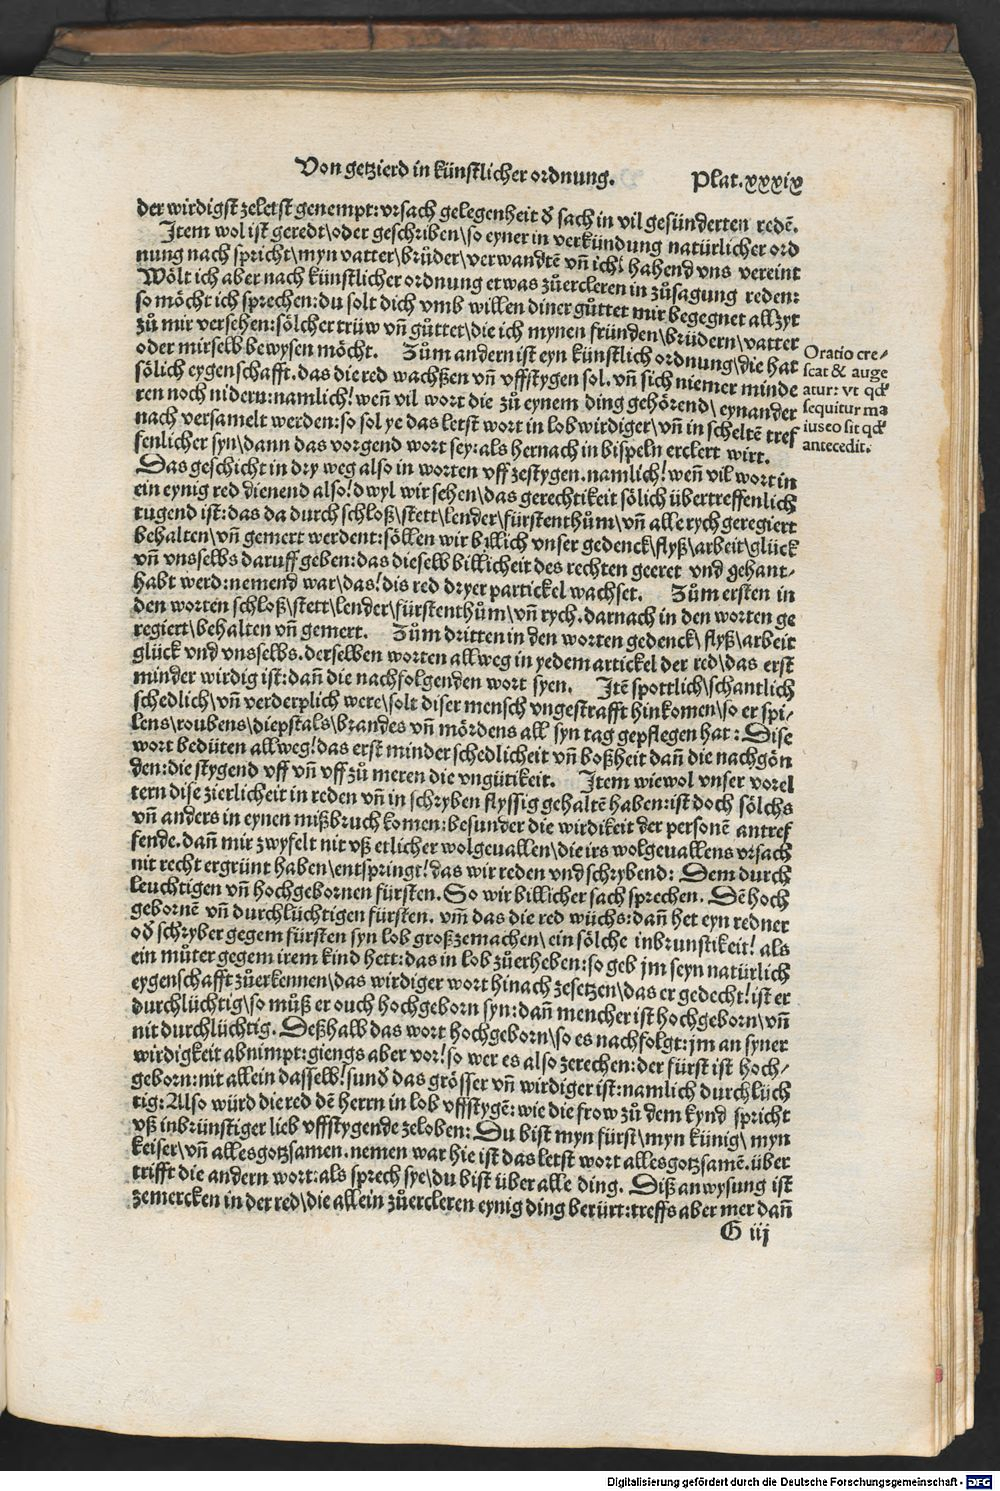 Von getzierd in künstlicher ordnung.
Plat.xxxix
der wirdigst zeletst genempt: vrsach gelegenheit ď sach in vil gesünderten redẽ.
Item wol ist geredt\oder geschriben\so eyner in verkündung natürlicher ord
nung nach spricht\myn vatter\brůder\verwandtẽ vñ ich! habend vns vereint
Wölt ich aber nach künstlicher ordnung etwas zůercleren in zůsagung reden:
so möcht ich sprechen: du solt dich vmb willen diner gůttet mir begegnet allzyt
zů mir versehen: sölcher trüw vñ gůttet\die ich mynen fründen\brüdern\vatter
oder mir selb bewysen möcht. Zům andern ist eyn künstlich ordnung\die hat
sölich eygenschafft. das die red wachßen vñ vffstygen sol. vñ sich niemer minde
ren noch nidern: namlich! weñ vil wort die zů eynem ding gehörend\ eynander
nach versamelt werden: so sol ye das letst wort in lob wirdiger\vñ in scheltẽ tref
fenlicher syn\dann das vorgend wort sey: als hernach in bispeln erclert wirt.
Oratio cre⸗
scat & auge
atur: vt qđ
sequitur ma
ius eo sit qđ
antecedit.
Das geschicht in dry weg also in worten vff zestygen. namlich! weñ vil wort in
ein eynig red dienend also! dwyl wir sehen\das gerechtikeit sölich übertreffenlich
tugend ist: das da durch schloß\stett\lender\fürstenthům\vñ alle rych geregiert
behalten\vñ gemert werdent: söllen wir billich vnser gedenck\flyß\arbeit\glück
vñ vnsselbs daruff geben: das dieselb billicheit des rechten geeret vnd gehant⸗
habt werd: nemend war\das! dis red dryer partickel wachset. Zům ersten in
den worten schloß\stett\lender\fürstenthům\vñ rych. darnach in den worten ge
regiert\behalten vñ gemert. Zům dritten in den worten gedenck\ flyß\arbeit
glück vnd vnsselbs. derselben worten allweg in yedem artickel der red\das erst
minder wirdig ist: dañ die nachfolgenden wort syen. Itẽ spottlich\schantlich
schedlich\vñ verderplich were\solt diser mensch vngestrafft hinkomen\so er spi⸗
lens\roubens\diepstals\brandes vñ mördens all syn tag gepflegen hat: Dise
wort bedüten allweg! das erst minder schedlicheit vñ boßheit dañ die nachgön
den: die stygend vff vñ vff zů meren die vngütikeit. Item wiewol vnser vorel
tern dise zierlicheit in reden vñ in schryben flyssig gehaltẽ haben: ist doch sölchs
vñ anders in eynen mißbruch komen: besunder die wirdikeit der personẽ antref
fende. dañ mir zwyfelt nit vß etlicher wolgeuallen\die irs wolgeuallens vrsach
nit recht ergrünt haben\entspringt! das wir reden vnd schrybend: Dem durch
leuchtigen vñ hochgebornen fürsten. So wir billicher sach sprechen. Dẽ hoch
gebornẽ vñ durchlüchtigen fürsten. vm̃ das die red wüchs: dañ het eyn redner
oď schryber gegem fürsten syn lob großzemachen\ ein sölche inbrunstikeit! als
ein můter gegem irem kind hett: das in lob zůerheben: so geb jm seyn natürlich
eygenschafft zůerkennen\das wirdiger wort hinach zesetzen\das er gedecht! ist er
durchlüchtig\so můß er ouch hochgeborn syn: dañ mencher ist hochgeborn\vñ
nit durchlüchtig. Deßhalb das wort hochgeborn\so es nachfolgt: jm an syner
wirdigkeit abnimpt: giengs aber vor! so wer es also zerechen: der fürst ist hoch⸗
geborn: nit allein dasselb! sunď das grösser vñ wirdiger ist: namlich durchlüch
tig: Also würd die red dẽ herrn in lob vffstygẽ: wie die frow zů dem kynd spricht
vß inbrünstiger lieb vffstygende zeloben: Du bist myn fürst\myn künig\ myn
keiser\vñ alles gotzsamen. nemen war hie ist das letst wort alles gotzsamẽ. über
trifft die andern wort: als sprech sye\du bist über alle ding. Diß anwysung ist
zemercken in der red\die allein zůercleren eynig ding berürt: treffs aber mer dañ
G iij
Digitalisierung gefördert durch die Deutsche Forschungsgemeinschaft - DFG